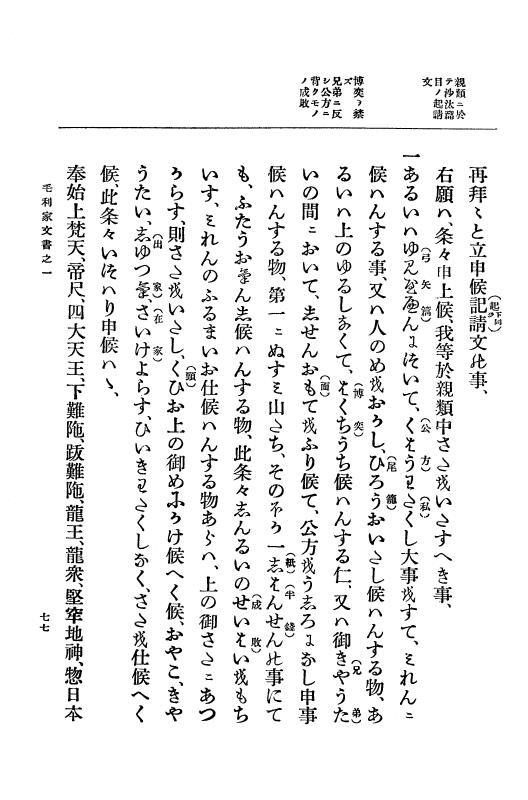 親類ニ於
テ沙汰篇
目ノ起請
文
博奕ヲ禁
ズ
兄弟ニ反
シ公方ニ
背クモノ
ノ成敗
再拝〻と立申候記請文此事、
(起、下同)
右願ハ、条々申上候、我等於親類中さた越いたすへき事、
一あるいハゆミ屋遍んに徒いて、くはう王たくし大事越すて、ミれんニ
(弓矢篇)
(公方)
(私)
候ハんする事、又ハ人のめ越おかし、ひろうおいたし候ハんする物、あ
(尾籠)
るいハ上のゆるしあくて、はくちうち候ハんする仁、又ハ御きやうた
(博奕)
(兄弟)
いの間ニおいて、志せんおもて越ふり候て、公方越うしろになし申事
(面)
候ハんする物、第一ニぬすミ山たち、そのほか一志はんせん此事にて
(紙)
(半錢)
も、ふたうお屋ん志候ハんする物、此条々志んるいのせいはい越もち
(成敗)
いす、ミれんのふるまいお仕候ハんする物あらハ、上の御さたニあつ
からす、則さた越いたし、くひお上の御めにかけ候へく候、おやこ、きや
(頸)
うたい、志ゆつ家、さいけよらす、ひいき王たくしなく、さた越仕候へく
(出家)
(在家)
候、此条々いつハり申候ハゝ、
奉始上梵天、帝尺、四大天王、下難陁、跋難陁、龍王、龍衆、堅牢地神、惣日本
毛利家文書之一
七七